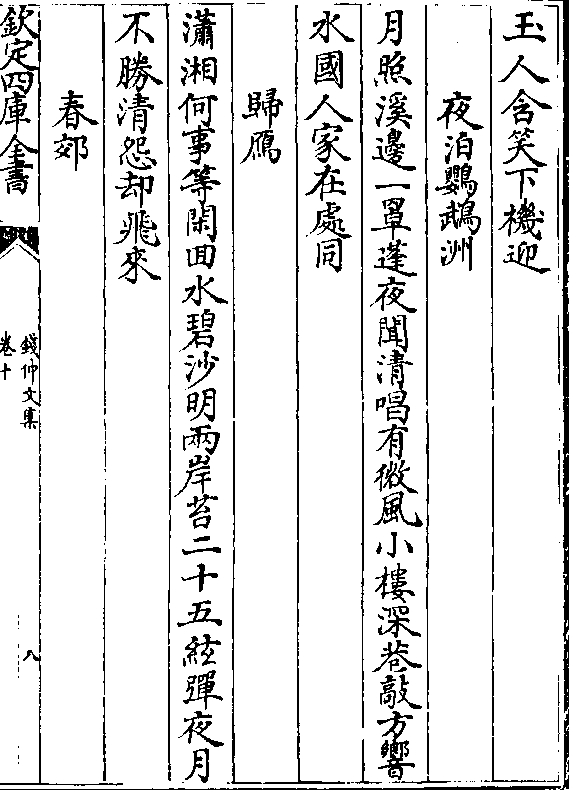 玉人含笑下機迎
夜泊鸚鵡洲
月照溪邊一罩蓬夜聞清唱有微風小樓深巷敲方響
水國人家在處同
歸鴈
瀟湘何事等閑回水碧沙明兩岸苔二十五絃彈夜月
不勝清怨却飛來
春郊
欽定四庫全書
錢仲文集
卷十
八